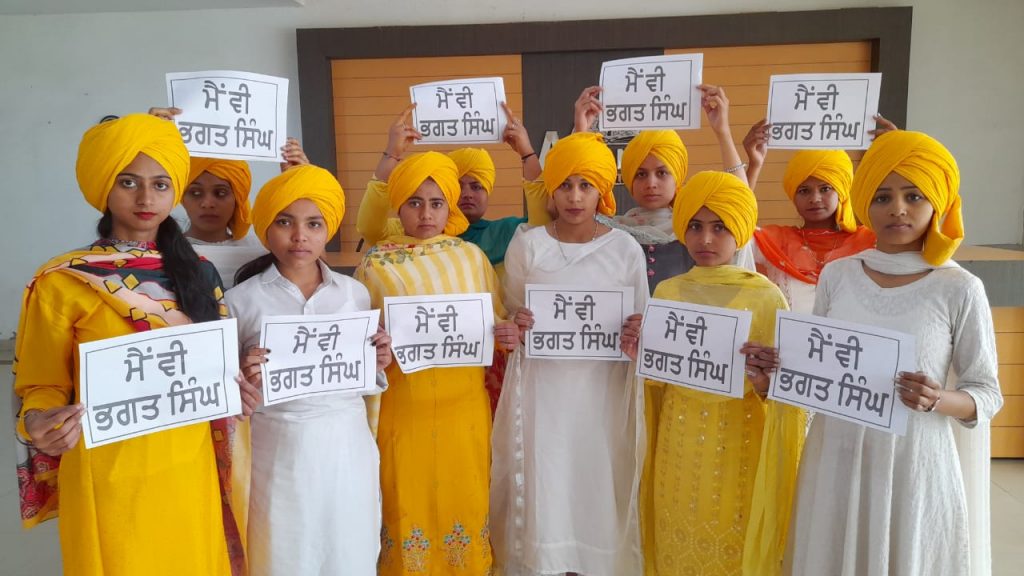 ਮੈਂ ਵੀ
ਭਗਤ ਸਿੰਘ
ਮੈਂ ਵੀ
ਭਗਤ ਸਿੰਘ
ਮੈਂ ਵੀ
ਭਗਤ ਸਿੰਘ
ਮੈਂ ਵੀ
ਭਗਤ ਸਿੰਘ
ਮੈਂ ਵੀ
ਭਗਤ ਸਿੰਘ
ਮੈਂ ਵੀ
ਭਗਤ ਸਿੰਘ
ਮੈਂ ਵੀ
ਭਗਤ ਸਿੰਘ
ਮੈਂ ਵੀ
ਭਗਤ ਸਿੰਘ
ਮੈਂ ਵੀ
ਭਗਤ ਸਿੰਘ
ਮੈਂ ਵੀ
ਭਗਤ ਸਿੰਘ